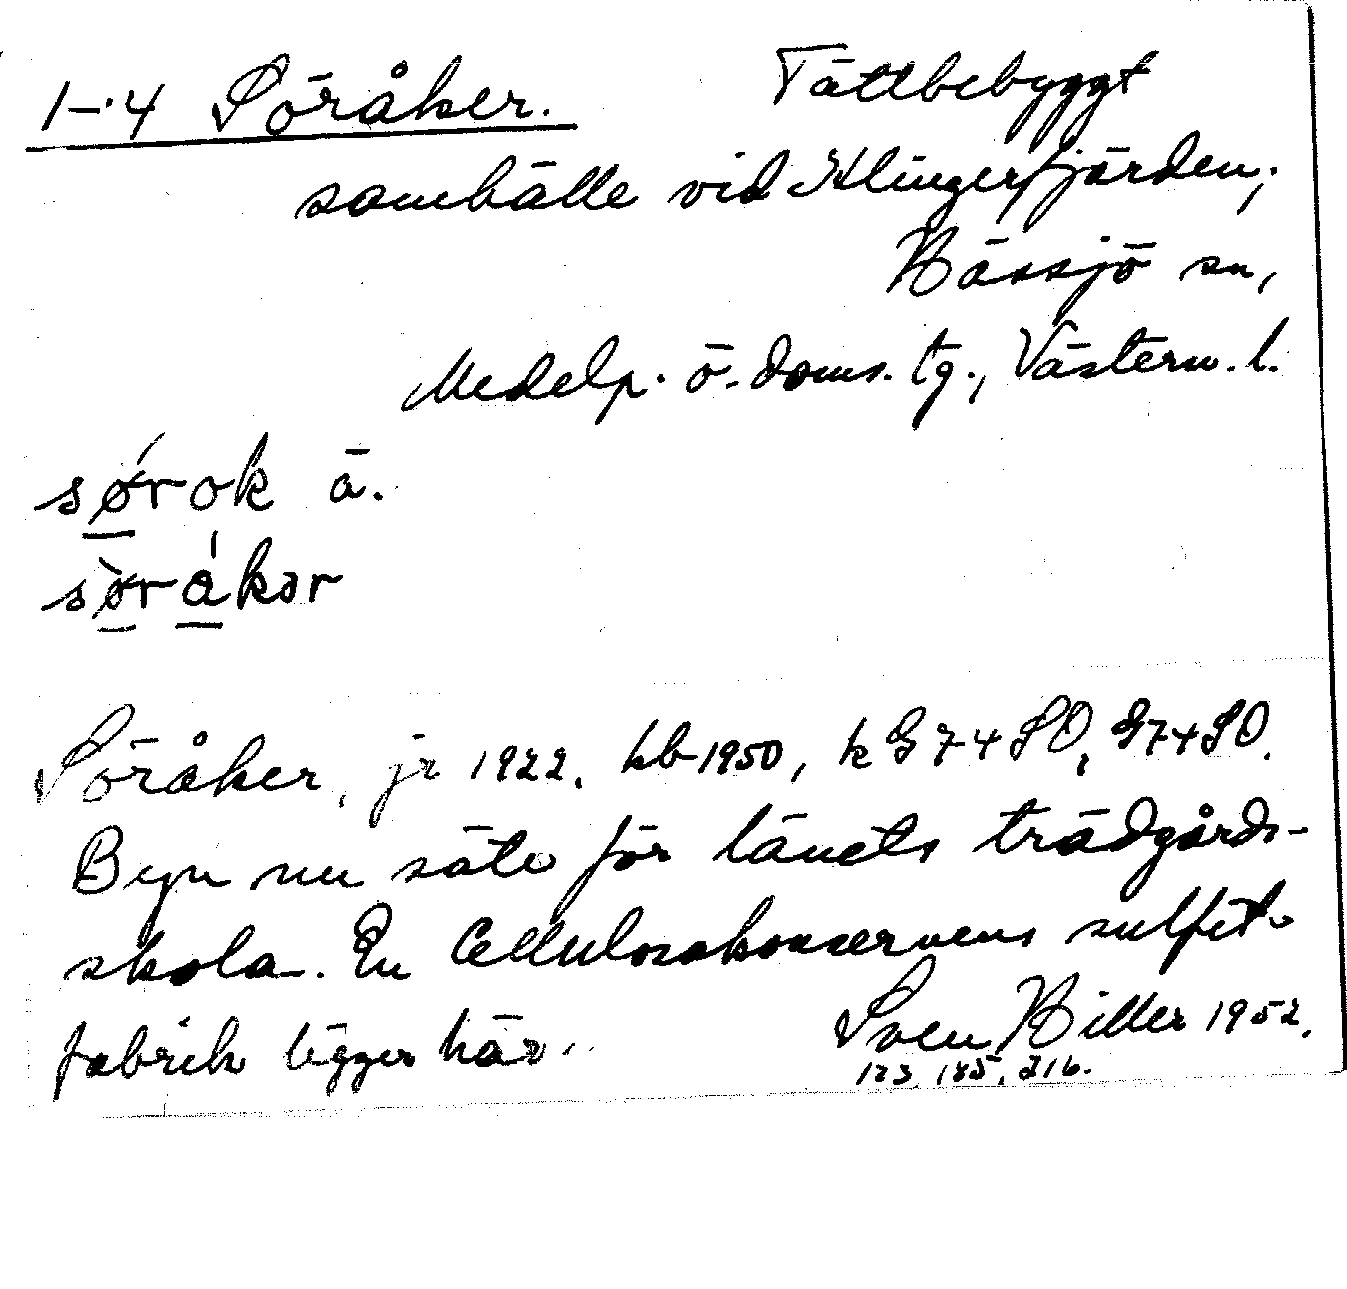 1-4 Söråker. Tättbebyggt
samhälle vid Klingerfjärden,
Hässjö sn,
Medelp. ö. doms. tg., Västern. l.
sørok ä.
søråkər
Söråker, jr 1922. hb 1950, k G 74 SO, G74SO.
Byn nu säte för länets trädgårds-
skola. En Cellulosakoncernens sulfit-
fabrik ligger här.
Sven Hiller 1952.
123, 185, 216.